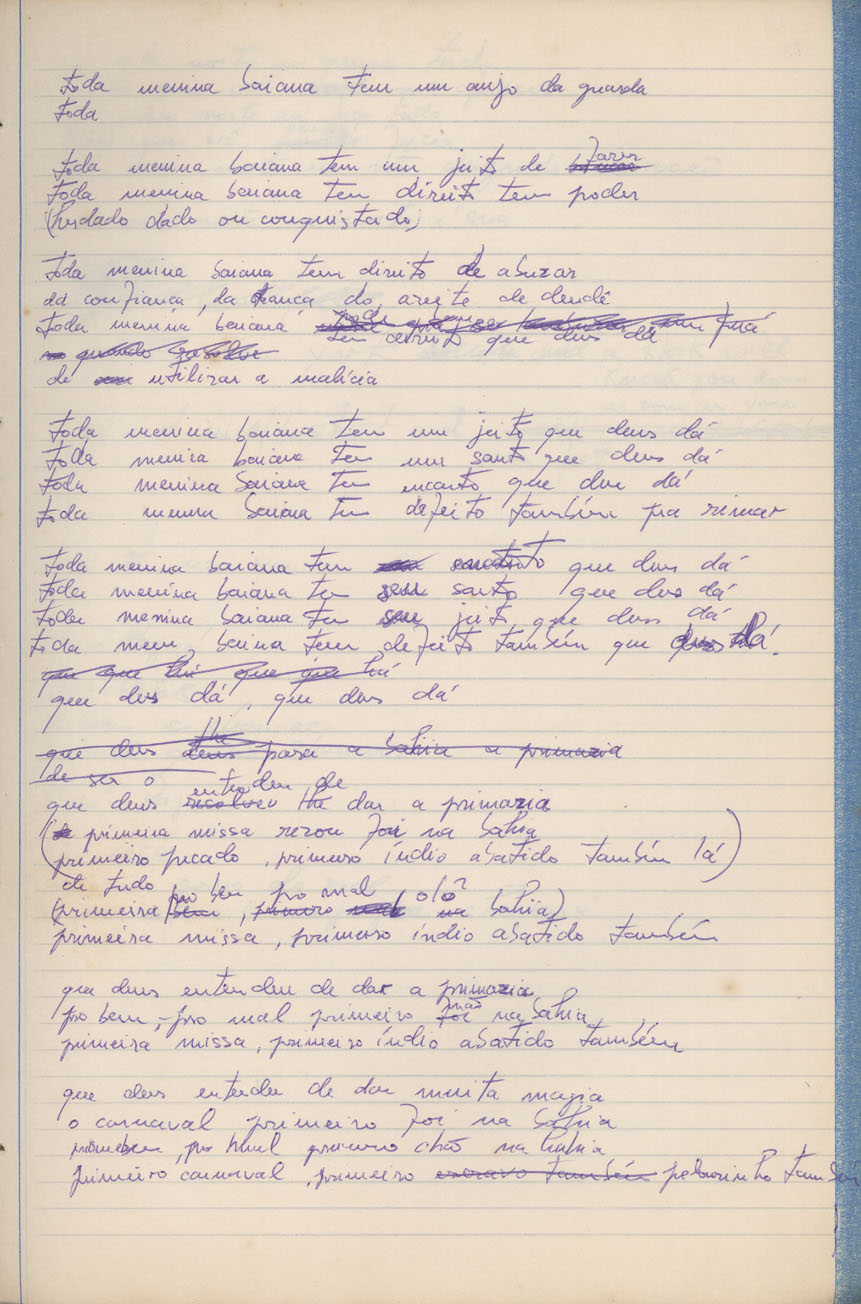 toda menina baiana tem um anjo da guarda
toda
toda menina baiana tem um jeito de fazer
toda menina baiana tem direito tem poder
(herdado dado ou conquistado)
toda menina baiana tem direito de abuzar
da confiança, da trança do azeite de dendê
toda menina baiana
tem direito que deus dá
quando
de utilizar a malícia
toda menina baiana tem um jeito que deus dá
toda menina baiana tem um santo que deus dá
toda menina baiana tem encanto que deus dá
toda menina baiana tem defeito também pra rimar
toda menina baiana tem encanto que deus dá
toda menina baiana tem seu santo que deus dá
toda menina baiana tem seu jeito que deus dá
toda menina baiana tem defeito também que deus dá.
que que há que que há
que deus dá, que deus dá
lhe
que deus deus para a bahia a primazia
de ser o
entendeu de
que deus resolveu lhe dar a primazia
(a primeira missa rezou foi na bahia
primeiro pecado, primeiro índio abatido também lá)
de tudo pro bem pro mal olô?
(primeira bem, primeiro mal na bahia)
primeira missa, primeiro índio abatido também
que deus entendeu de dar a primazia
chão
pro bem, pro mal primeiro foi na bahia
primeira missa, primeiro índio abatido também
que deus entendeu de dar muita magia
o carnaval primeiro foi na bahia
pro bem, pro mal primeiro chão na bahia
primeiro carnaval, primeiro escravo também pelourinho também